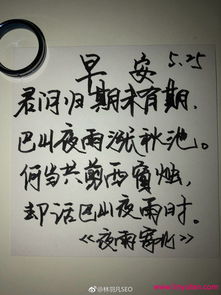 早安 5.25
君问归期未有期，
巴山夜雨涨秋池。
何当共剪西窗烛，
却话巴山夜雨时。
《夜雨寄北》
@林羽凡SEO